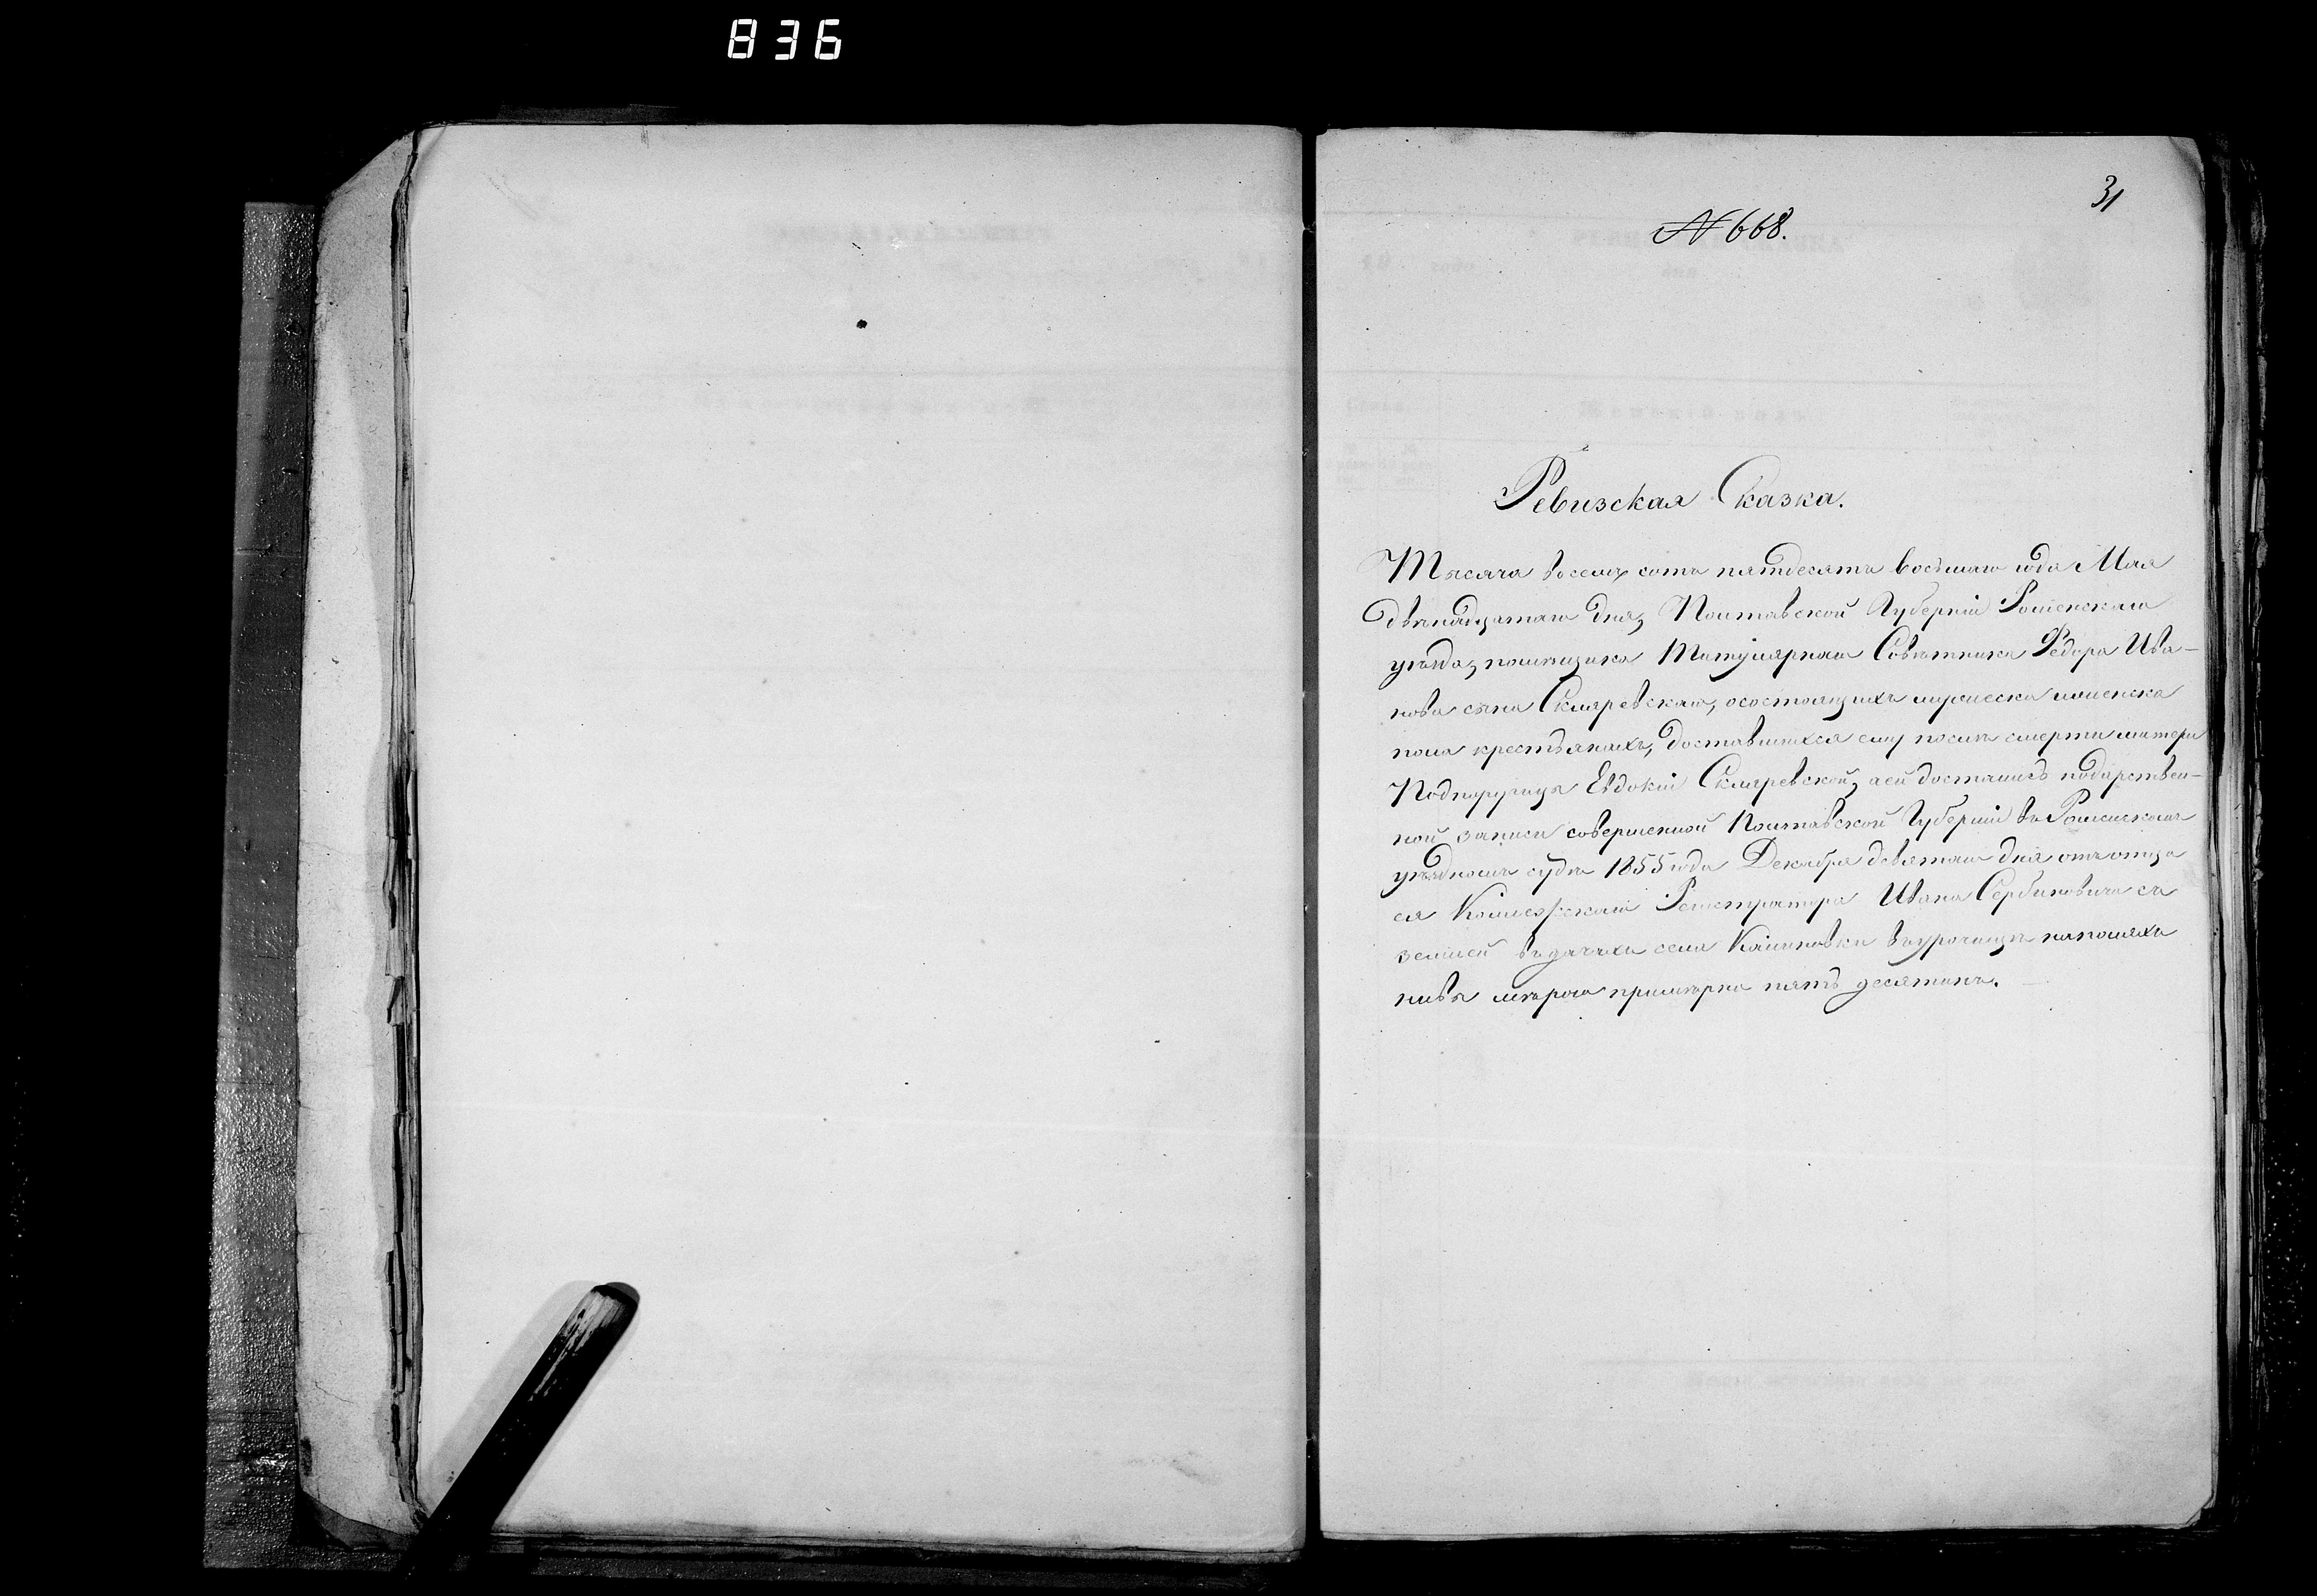 836
31
№ 668.
Ревизская Сказка.
Тысяча восемь сотъ пятдесятъ восьмаго года Мая
двѣнадцатаго дня, Полтавской Губерніи Роменскаго
уѣзда, помѣщика Титулярнаго Совѣтника Федора Ива-
нова сына Скляревскаго, о состоящихъ мужеска и женска
пола крестьянахъ, доставшихся ему послѣ смерти матери
Подпоручицы Евдокіи Скляревской, а ей достались по дарствен-
ной записи совершенной Полтавской Губерніи въ Роменскомъ
уѣздномъ судѣ 1855 года Декабря девятаго дня отъ отца
ея Коллежскаго Регистратора Ивана Сербиновича съ
землей въ дачахъ села Калиновки въ урочищѣ на поляхъ
нивы мѣрою примѣрно пять десятинъ.